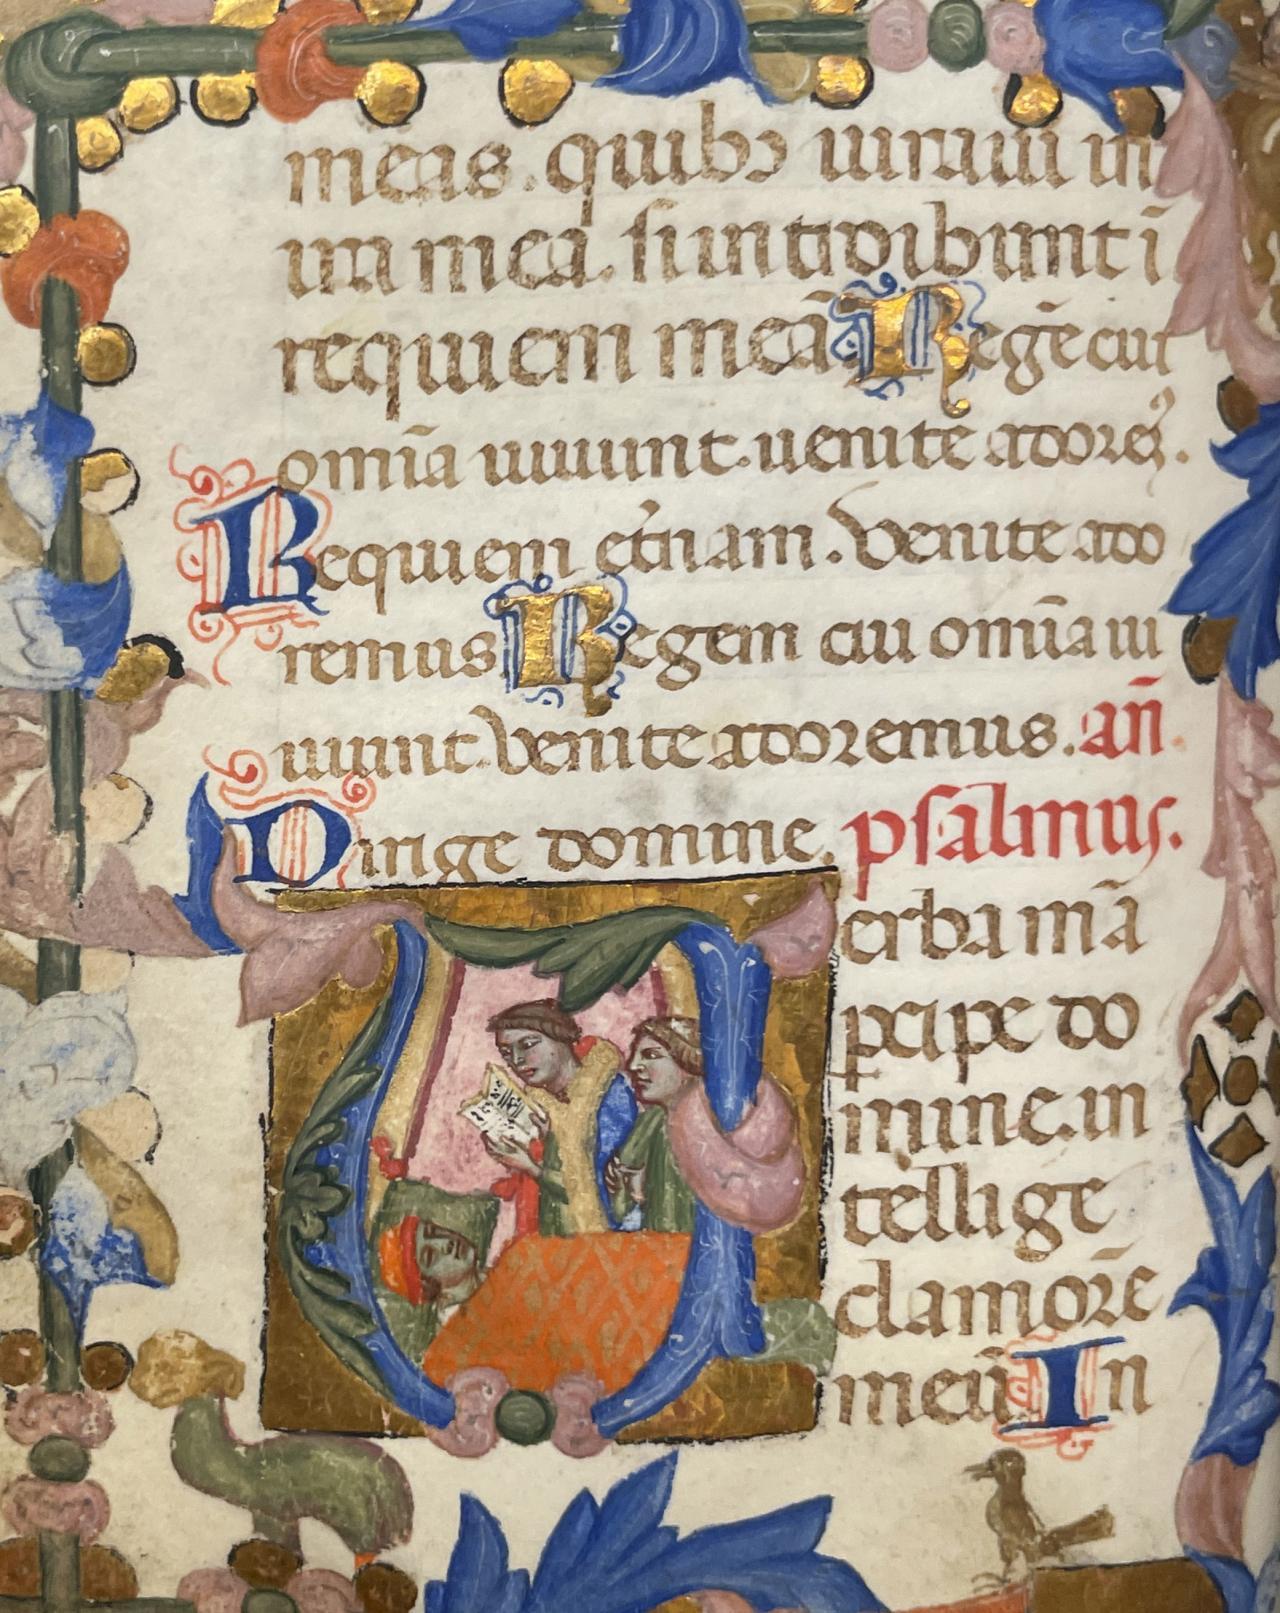 meas. quibꝫ iuraui in
ira mea. si introibunt ī
requiem meā Regē cui
omīa uiuunt. uenite adoremꝰ.
Requiem et̄nam. Venite ado
remus Regem cui omīa ui
uunt. Venite adoremus. an̄.
Dirige domine. psalmus.
Verba m̄a
ꝑcipe do
mine. in
tellige
clamorē
meū In